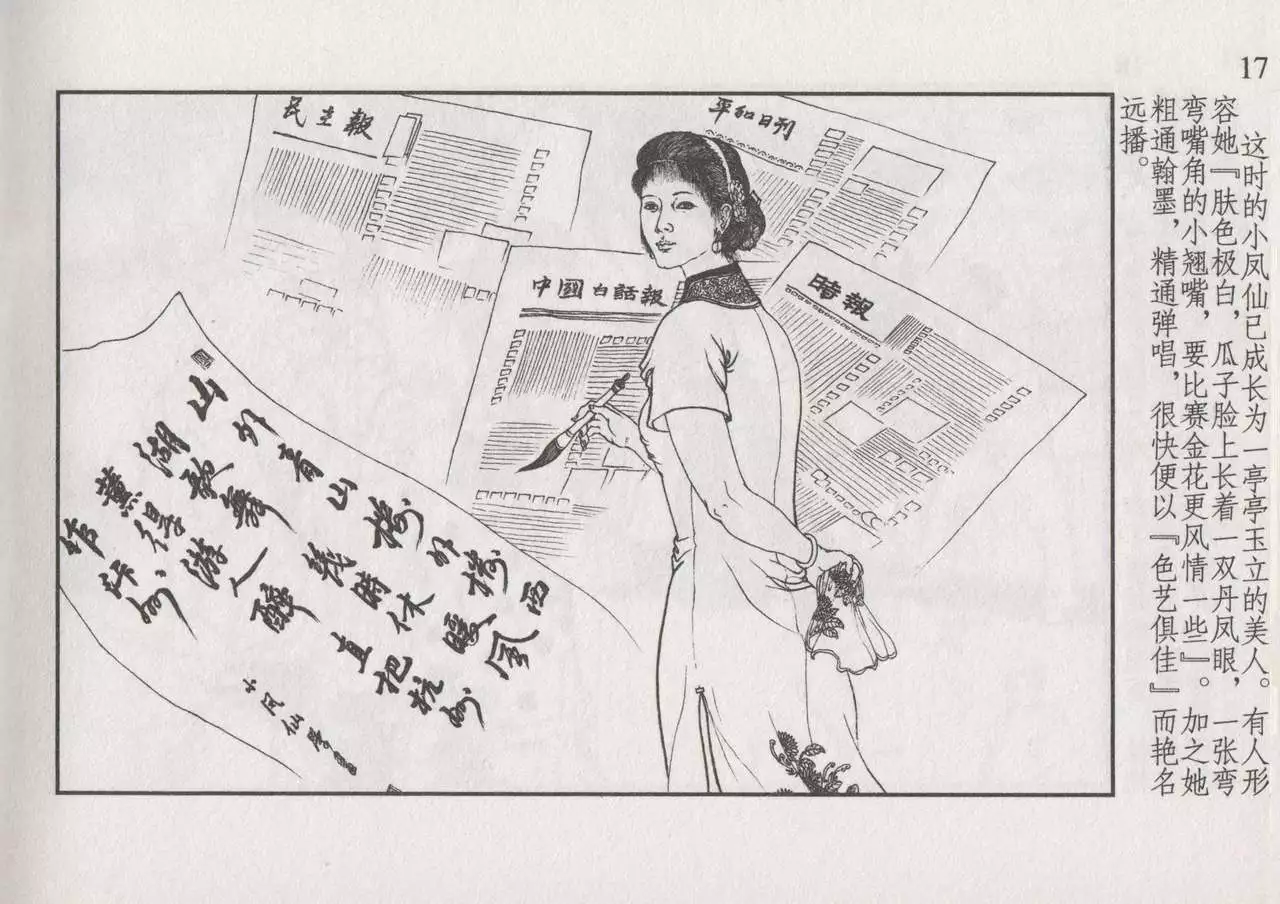 17
这时的小凤仙已成长为一亭亭玉立的美人。有人形
容她『肤色极白，瓜子脸上长着一双丹凤眼，一张弯
弯嘴角的小翘嘴，要比赛金花更风情一些』。加之她
粗通翰墨，精通弹唱，很快便以『色艺俱佳』而艳名
远播。
平和日刊
民主報
時報
中國白話報
山外青山楼外楼西
湖歌舞幾時休暖風
薰得游人醉直把杭州
作汴州
小凤仙